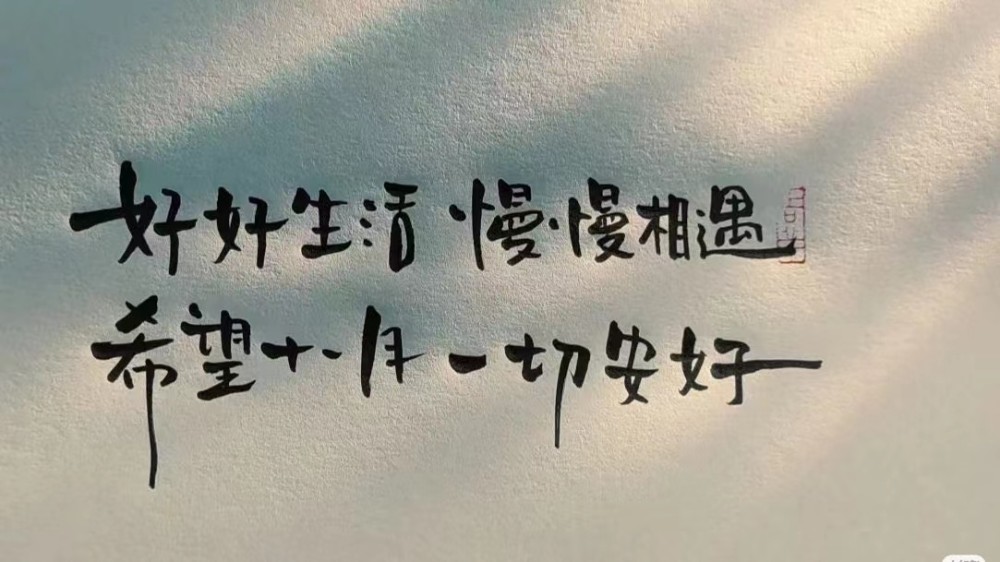 好好生活 慢慢相遇
希望十一月一切安好